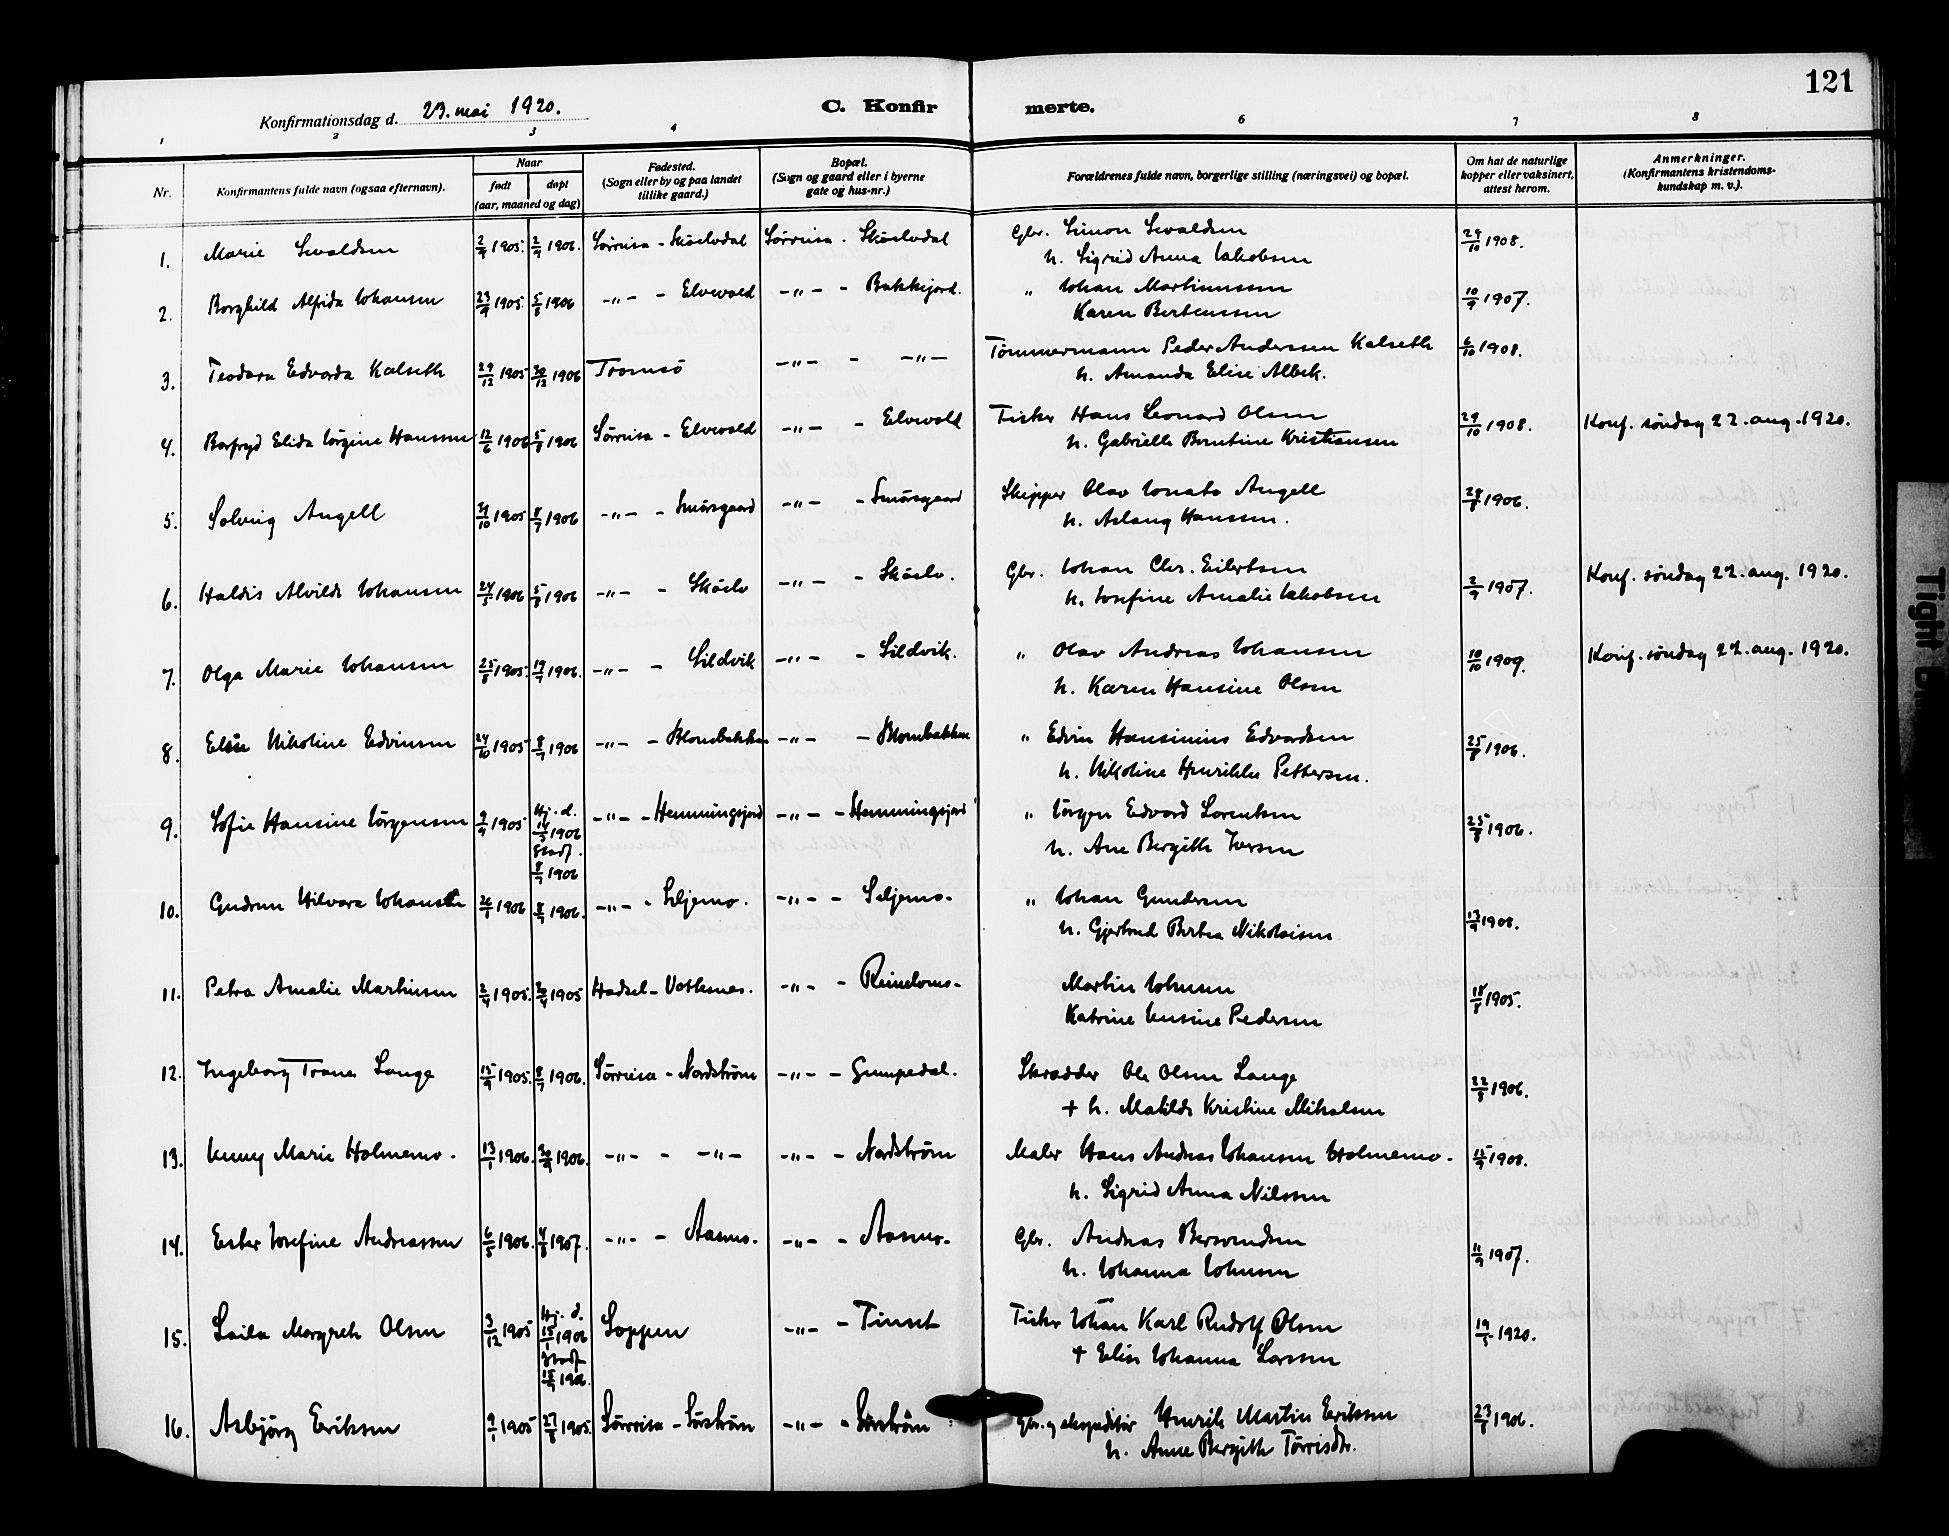 121
Konfirmationsdag d. 23. mai 1920.
C. Konfir merte.
1 2 3 4 6 7 8
Nr. Konfirmantens fulde navn (ogsaa efternavn). Naar født døpt (aar, maaned og dag) Fødested. (Sogn eller by og paa landet tillike gaard.) Bopæl. (Sogn og gaard eller i byerne gate og hus-nr.) Forældrenes fulde navn, borgerlige stilling (næringsvei) og bopæl. Om hat de naturlige kopper eller vaksinert, attest herom. Anmerkninger. (Konfirmantens kristendoms- kundskap m. v.).
1. Marie Sivaldsen 2/9 1905. 2/9 1906. Sørreisa - Skøelvdal Sørreisa - Skøelvdal Gbr. Simon Sivaldsen 29/10 1908.
h. Sigrid Anna Jakobsen
2. Borghild Alfida Johansen 23/9 1905 5/8 1906 -"- - Elvevold -"- - Bakkejord. " Johan Martinussen 10/9 1907.
Karen Berteussen
3. Teodora Edvarda Kalseth 29/12 1905 30/12 1906 Tromsö -"- - -"- Tømmermann Peder Anderssen Kalseth 6/10 1908.
h. Amanda Elise Albek.
4. Borfryd Elida Jörgine Hanssen 12/6 1906 5/8 1906 Sörreisa - Elvevold -"- - Elvevold Fisker Hans Leonard Olsen 29/10 1908. Konf. søndag 22. aug. 1920.
h. Gabrielle Berntine Kristiansen
5. Solveig Angell 31/10 1905 8/7 1906 -"- - Smörsgaard -"- - Smörsgaard Skipper Olav Angell 28/8 1906.
h. Aslaug Hanssen.
6. Haldis Alvilde Johansen 24/5 1906 5/8 1906 -"- - Sköelv -"- - Sköelv. Gbr. Johan Chr. Eilertsen 2/9 1907. Konf. søndag 22. aug. 1920.
h. Josefine Amalie Jakobsen
7. Olga Marie Johansen 25/8 1905. 19/7 1906. -"- - Sildvik -"- - Sildvik. " Olav Andreas Johansen 10/10 1909. Konf. søndag 22. aug. 1920.
h. Karen Hansine Olsen
8. Elise Nikoline Edvinsen 24/10 1905 8/7 1906 -"- - Blombakken -"- - Blombakken " Edvin Hansinius Edvardsen 25/8 1906.
h. Nikoline Henrikke Pettersen.
9. Sofie Hansine Jörgensen 9/9 1905 Hj. d. 14/3 1906 Stadf. 8/7 1906 -"- - Hemmingsjord -"- - Hemmingsjord " Jörgen Edvard Lorentsen 25/8 1906.
h. Ane Bergitte Iversen
10. Gudrun Hilvara Johansen 26/1 1906 8/7 1906. -"- - Seljemo. -"- - Seljemo. " Johan Gundersen 13/9 1908.
h. Gjertrud Bertea Nikolaisen
11. Petra Amalie Martinsen 2/4 1905. 30/4 1905 Hadsel - -"- - Martin Johnsen 18/8 1905.
Katrine Pedersen
12. Ingeborg Trane Lange 15/9 1905. 8/7 1906. Sörreisa - Nordström -"- - Gumpedal. Skrædder Ole Olsen Lange 22/8 1906.
+ h. Matilde Kristine Mikalsen
13. Marie Holmemo. 13/1 1906. 30/9 1906. -"- - -"- -"- - Nordström Maler Hans Andreas Johansen Holmemo. 15/9 1908.
h. Sigrid Anna Nilssen
14. Ester Josefine Andreassen 6/5 1906. 4/8 1907. -"- - Aasmo. -"- - Aasmo. Gbr. Andreas Bervendsen 11/9 1907.
h. Johanna Johnsen
15. Laila Margreth Olsen 3/12 1905 Hj. d. 15/1 1906 Stadf. 15/9 1906. Loppen -"- - Finset Fisker Johan Karl Rudolf Olsen 19/5 1920.
+ Elise Johanna Larssen
16. Asbjörg Eriksen 9/1 1905 27/8 1905. Sörreisa - Sörström -"- - Sörström Gbr. og ekspeditör Henrik Martin Eriksen 23/8 1906.
h. Anne Bergitte Törrisdtr.
Tight